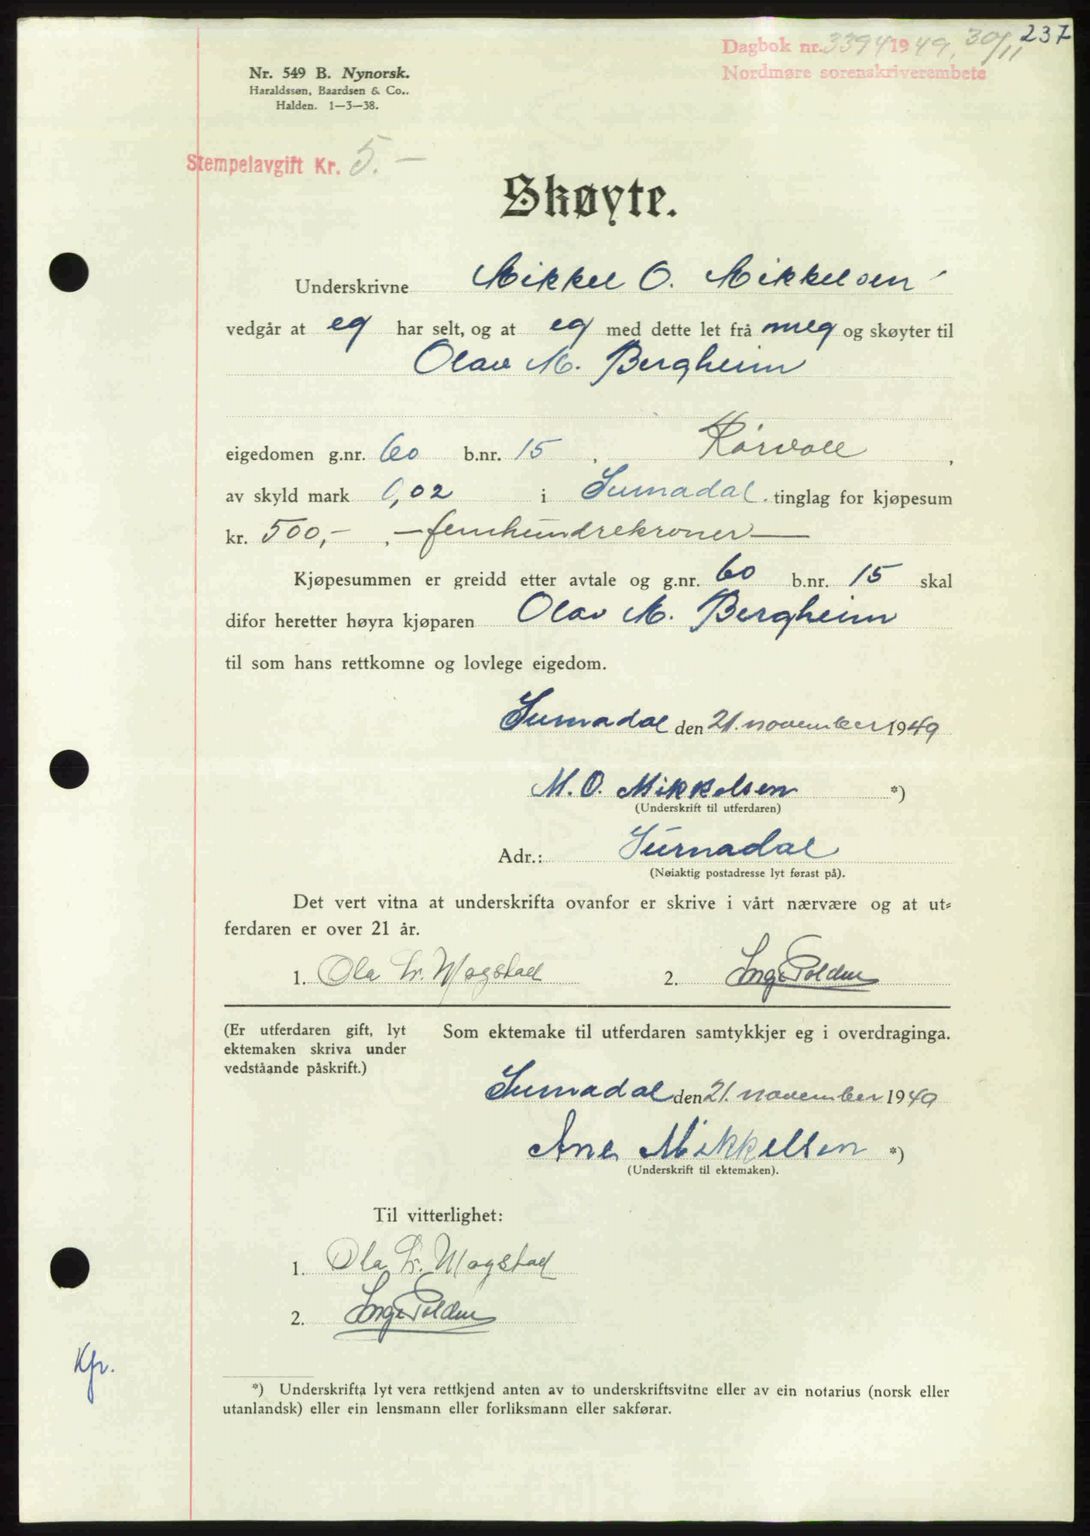 237
Dagbok nr. 3394 1949, 30/11
Nordmøre sorenskriverembete
Nr. 549 B. Nynorsk.
Haraldssøn, Baardsen & Co..
Halden. 1—3—38.
Stempelavgift Kr. 5.—
Skøyte.
Underskrivne Mikkel O. Mikkelsen
vedgår at eg har selt, og at eg med dette let frå meg og skøyter til
Olav M. Bergheim
eigedomen g.nr. 60 b.nr. 15 , Rørvoll ,
av skyld mark 0,02 i Surnadal tinglag for kjøpesum
kr. 500,- , — femhundrekroner —
Kjøpesummen er greidd etter avtale og g.nr. 60 b.nr. 15 skal
difor heretter høyra kjøparen Olav M. Bergheim
til som hans rettkomne og lovlege eigedom.
Surnadal den 21. november 1949
M. O. Mikkelsen *)
(Underskrift til utferdaren)
Adr.: Surnadal
(Nøiaktig postadresse lyt førast på).
Det vert vitna at underskrifta ovanfor er skrive i vårt nærvære og at ut-
ferdaren er over 21 år.
1. Ola Magstad 2. Inge Polden
(Er utferdaren gift, lyt
ektemaken skriva under
vedståande påskrift.)
Som ektemake til utferdaren samtykkjer eg i overdraginga.
Surnadal den 21. november 1949
Ane Mikkelsen *)
(Underskrift til ektemaken).
Til vitterlighet:
1. Ola Magstad
2. Inge Polden
Kfr.
*) Underskrifta lyt vera rettkjend anten av to underskriftsvitne eller av ein notarius (norsk eller
utanlandsk) eller ein lensmann eller forliksmann eller sakførar.